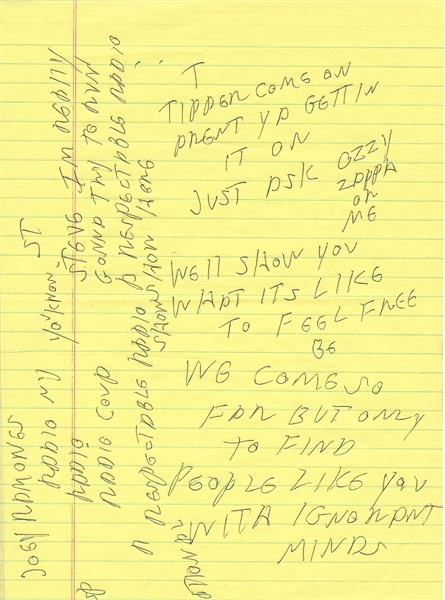 JOEY RAMONES
RADIO NY YAKNOW. ST
RADIO STEVE IM REALLY
RADIO GONNA TRY TO RUN
A RESPECTABLE RADIO
A RESPECTABLE RADIO
SHOW HERE
T
TIPPER COME ON
ARENT YA GETTIN
IT ON
JUST ASK OZZY
ZAPPA
OR
ME
WELL SHOW YOU
WHAT ITS LIKE
TO FEEL FREE
BE
WE COME SO
FAR BUT ONLY
TO FIND
PEOPLE LIKE YOU
WITA IGNORANT
MINDS